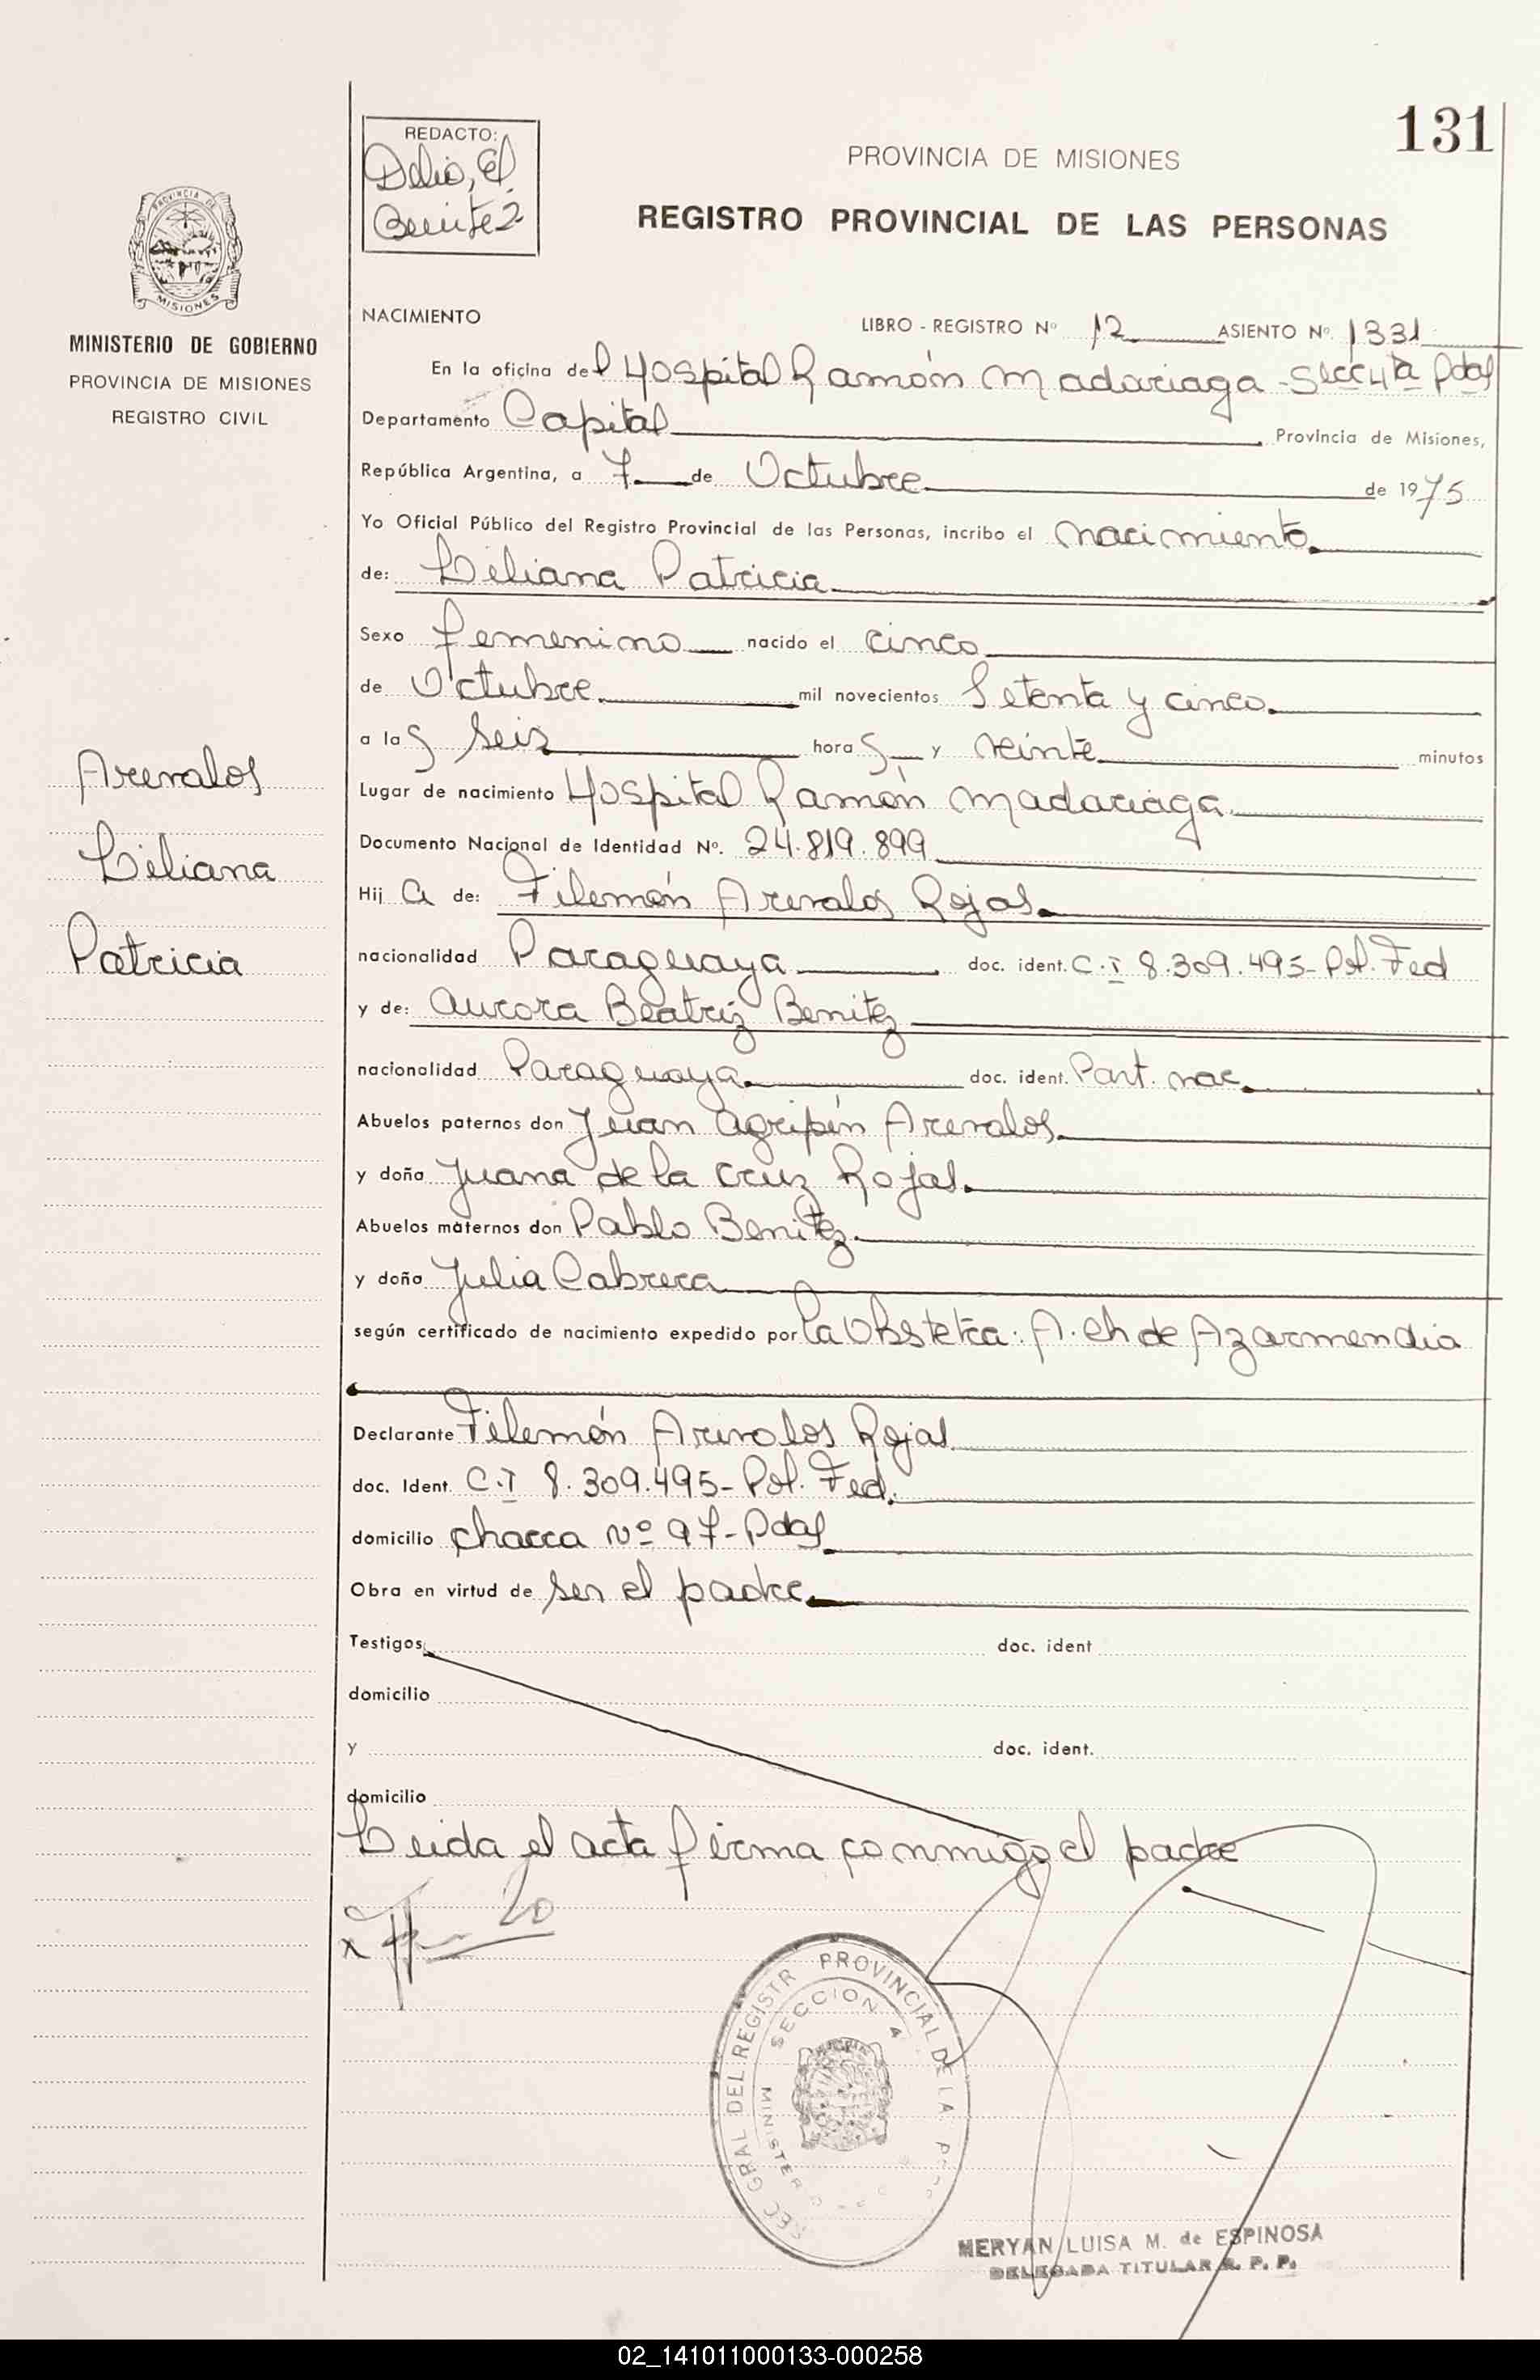 131
REDACTO:
Delio, El
Benitez
PROVINCIA DE MISIONES
REGISTRO PROVINCIAL DE LAS PERSONAS
PROVINCIA DE
MISIONES
MINISTERIO DE GOBIERNO
PROVINCIA DE MISIONES
REGISTRO CIVIL
NACIMIENTO
LIBRO - REGISTRO Nº 12 ASIENTO Nº 1331
En la oficina del Hospital Ramón Madariaga - Secc 4ta Pdas
Departamento Capital Provincia de Misiones,
República Argentina, a 7 de Octubre de 1975
Yo Oficial Público del Registro Provincial de las Personas, incribo el nacimiento
de: Liliana Patricia
Sexo femenino nacido el cinco
de Octubre mil novecientos Setenta y cinco
a las seis horas y veinte minutos
Lugar de nacimiento Hospital Ramón Madariaga
Documento Nacional de Identidad Nº. 24.819.899
Hija de: Filemón Arevalos Rojas
nacionalidad Paraguaya doc. ident. C.I 8.309.495- Pol. Fed
y de: Aurora Beatriz Benitez
nacionalidad Paraguaya doc. ident. Part. nac
Abuelos paternos don Juan Agripín Arevalos
y doña Juana de la Cruz Rojas
Abuelos maternos don Pablo Benitez
y doña Julia Cabrera
según certificado de nacimiento expedido por la Obstetra: A. Ch de Azarmendia
Declarante Filemón Arevalos Rojas
doc. Ident. C.I 8.309.495- Pol. Fed.
domicilio chacra Nº 97- Pdas
Obra en virtud de ser el padre
Testigos doc. ident
domicilio
y doc. ident.
domicilio
Leida el acta firma conmigo el padre
Arevalos
Liliana
Patricia
REC GRAL DEL REGISTR PROVINCIAL DE LA
SECCION 4
MINISTER
MERYAN LUISA M. de ESPINOSA
DELEGADA TITULAR R. P. P.
02_141011000133-000258